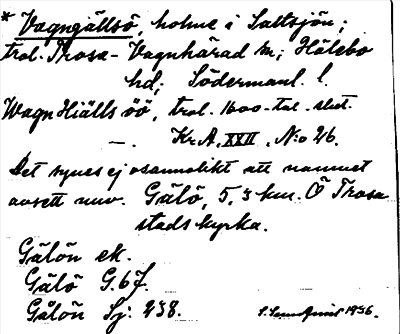 * Vagngällsö, holme i Saltsjön;
trol. Trosa-Vagnhärad sn; Hölebo
hd; Södermanl. l.
Wagn Hiälls öö, trol. 1600-tal. slut.
—. Kr.A. XXII, No 26.
Det synes ej osannolikt att namnet
avsett nuv. Gälö, 5,3 km. Ö Trosa
stads kyrka.
Gälön ek.
Gälö G.67.
Gålön Sj: 238.
1936.